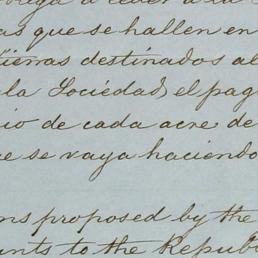 a ceder a la
as que se hallen en
tierras destinados al
la Sociedad, el pag
io de cada acre de
e se vaya haciendo
ns proposed by the
ants to the Republ